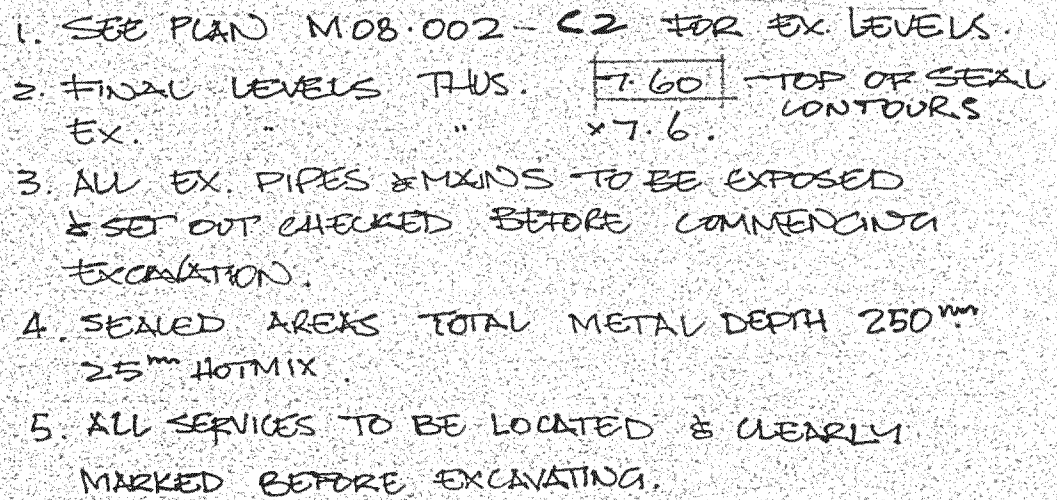 1. SEE PLAN M08.002 - C2 FOR EX. LEVELS.
2. FINAL LEVELS THUS. 7.60 TOP OF SEAL
CONTOURS
EX. " " x7.6.
3. ALL EX. PIPES & MAINS TO BE EXPOSED
& SET OUT CHECKED BEFORE COMMENCING
EXCAVATION.
4. SEALED AREAS TOTAL METAL DEPTH 250mm
25mm HOTMIX.
5. ALL SERVICES TO BE LOCATED & CLEARLY
MARKED BEFORE EXCAVATING.